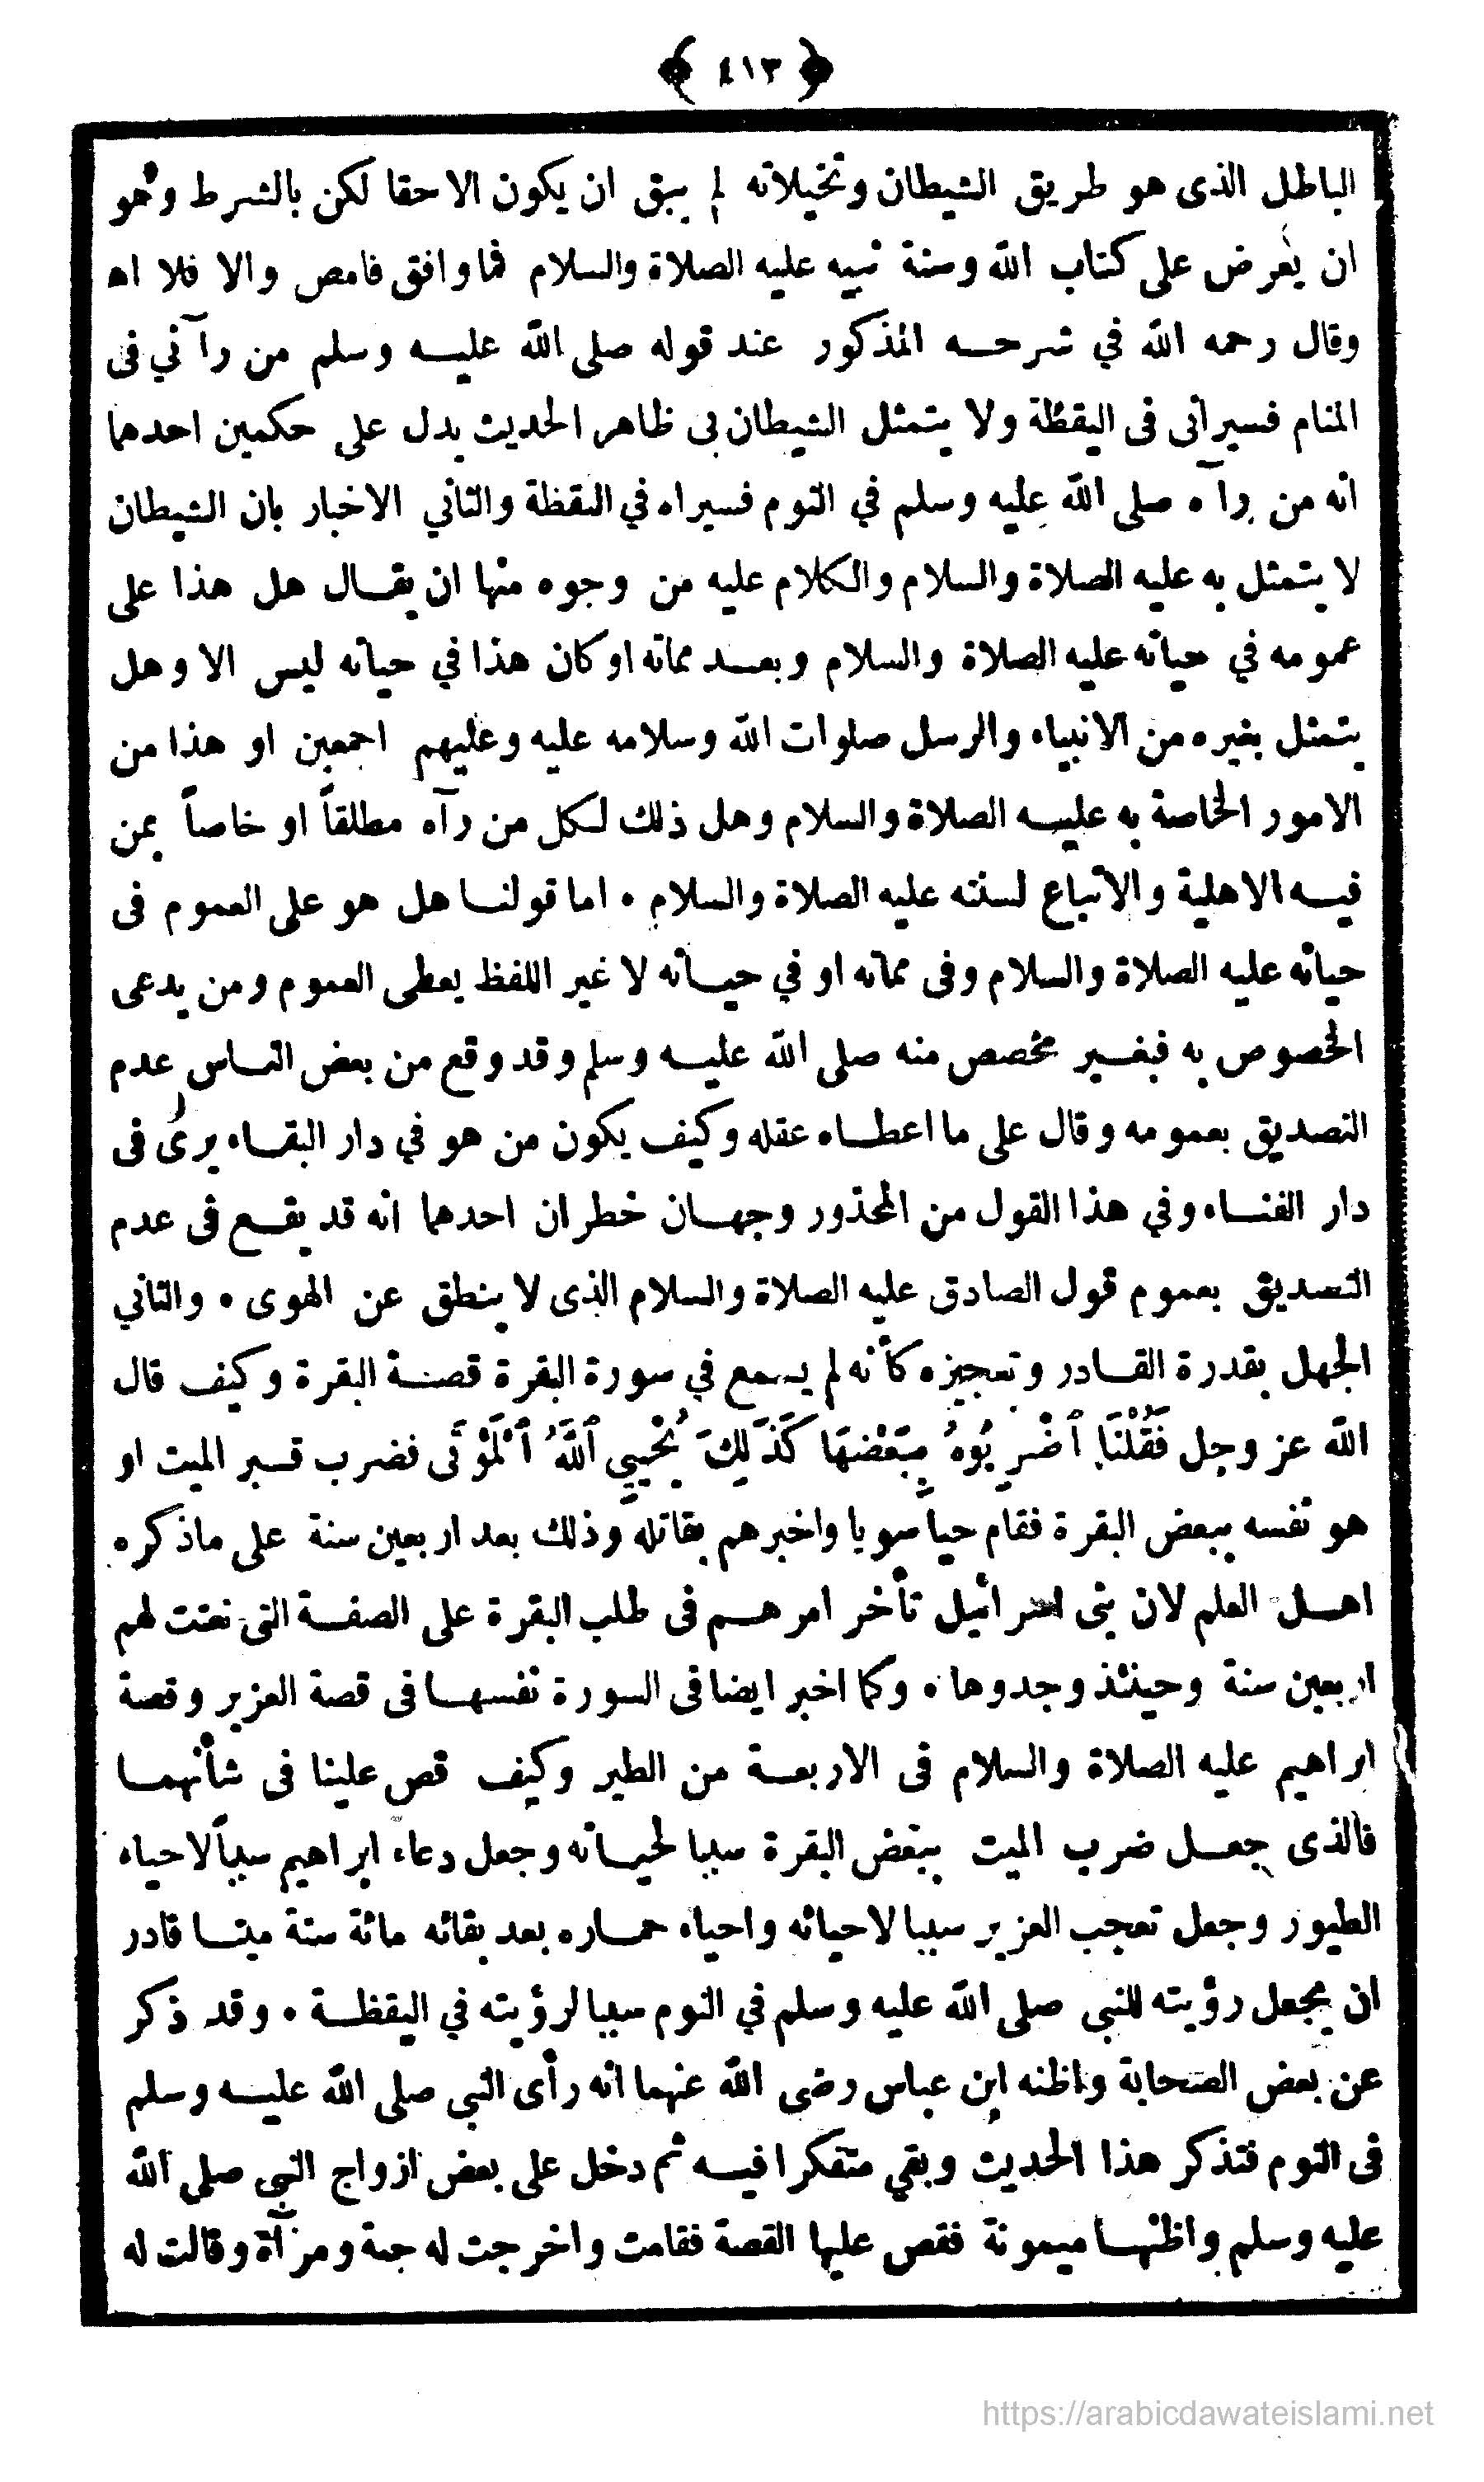 ﴿ ٤١٣ ﴾
الباطل الذى هو طريق الشيطان وتخيلاته لم يبق ان يكون الاحقا لكن بالشرط وهو
ان يعرض على كتاب الله وسنة نبيه عليه الصلاة والسلام فما وافق فامض والا فلا اه
وقال رحمه الله في شرحه المذكور عند قوله صلى الله عليه وسلم من رآني فى
المنام فسيرانى فى اليقظة ولا يتمثل الشيطان بى ظاهر الحديث يدل على حكمين احدهما
انه من رآه صلى الله عليه وسلم في النوم فسيراه في اليقظة والثاني الاخبار بان الشيطان
لا يتمثل به عليه الصلاة والسلام والكلام عليه من وجوه منها ان يقال هل هذا على
عمومه في حياته عليه الصلاة والسلام وبعد مماته او كان هذا في حياته ليس الا وهل
يتمثل بغيره من الانبياء والرسل صلوات الله وسلامه عليه وعليهم اجمعين او هذا من
الامور الخاصة به عليه الصلاة والسلام وهل ذلك لكل من رآه مطلقاً او خاصاً بمن
فيه الاهلية والاتباع لسنته عليه الصلاة والسلام • اما قولنا هل هو على العموم فى
حياته عليه الصلاة والسلام وفى مماته او في حياته لا غير اللفظ يعطى العموم ومن يدعى
الخصوص به فبغير مخصص منه صلى الله عليه وسلم وقد وقع من بعض الناس عدم
التصديق بعمومه وقال على ما اعطاه عقله وكيف يكون من هو في دار البقاء يرى فى
دار الفناء وفي هذا القول من المحذور وجهان خطران احدهما انه قد يقع فى عدم
التصديق بعموم قول الصادق عليه الصلاة والسلام الذى لا ينطق عن الهوى • والثاني
الجهل بقدرة القادر وتعجيزه كأنه لم يسمع في سورة البقرة قصة البقرة وكيف قال
الله عز وجل فَقُلْنَا ٱضْرِبُوهُ بِبَعْضِهَا كَذَٰلِكَ يُحْيِي ٱللَّهُ ٱلْمَوْتَى فضرب قبر الميت او
هو نفسه ببعض البقرة فقام حياً سويا واخبرهم بقاتله وذلك بعد اربعين سنة على ماذكره
اهل العلم لان بنى اسرائيل تأخر امرهم فى طلب البقرة على الصفة التى نعتت لهم
اربعين سنة وحينئذ وجدوها • وكما اخبر ايضا فى السورة نفسها فى قصة العزير وقصة
ابراهيم عليه الصلاة والسلام فى الاربعة من الطير وكيف قص علينا فى شأنهما
فالذى جعل ضرب الميت ببعض البقرة سببا لحياته وجعل دعاء ابراهيم سبباً لاحياء
الطيور وجعل تعجب العزير سببا لاحيائه واحياء حماره بعد بقائه مائة سنة ميتا قادر
ان يجعل رؤيته للنبى صلى الله عليه وسلم في النوم سببا لرؤيته في اليقظة • وقد ذكر
عن بعض الصحابة واظنه ابن عباس رضى الله عنهما انه رأى النبى صلى الله عليه وسلم
فى النوم فتذكر هذا الحديث وبقي متفكرا فيه ثم دخل على بعض ازواج النبى صلى الله
عليه وسلم واظنها ميمونة فقص عليها القصة فقامت واخرجت له جبة ومرآة وقالت له
https://arabicdawateislami.net